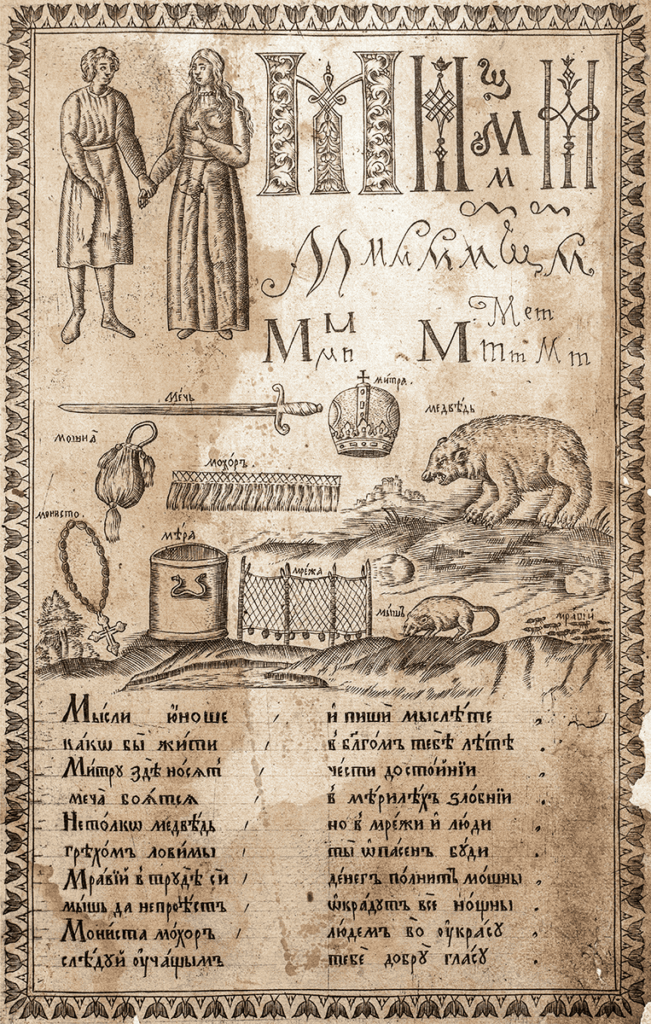 М Н щ М м Н
М м
М м
Мет
М т т М т
Мечь
митра.
медвѣдь
мошна̀
мохоръ.
монисто
мѣра
мрежа
мышь
мравїй
Мы́сли ю҆́ноше / и҆ пишѝ мыслѣ́те ,
ка́кѡ бы̀ жи́ти / в̾ бл҃го́мъ тебѣ̀ лѣ́тѣ .
Ми́трꙋ здѣ̀ но́сѧтъ / че́сти досто́йнїи
меча̀ боѧ́тсѧ / в̾ мѣ́рилѣхъ ѕло́бнїи .
Не то́лкѡ медвѣ́дь / но в̾ мре́жи и҆ лю́ди
грѣхо́мъ лови́мы / ты̀ ѡ҆па́сенъ бꙋ́ди
Мра́вїй в̾ трꙋдѣ̀ сѝ / де́негъ по́лнитъ мо́шны ,
мы́шь да не проѣ́стъ / ѡ҆кра́дꙋтъ всѐ но́щны ,
Мони́ста мо́хоръ / лю́демъ во ᲂу҆кра́сꙋ .
слѣ́дꙋй ᲂу҆ча́щымъ / тебѐ добрꙋ̀ гла́сꙋ .